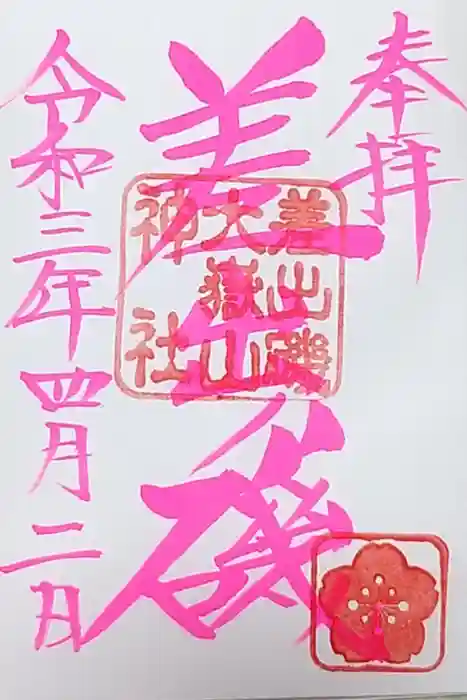 奉拝
差出磯
差出磯
大嶽山
神社
令和三年四月二日